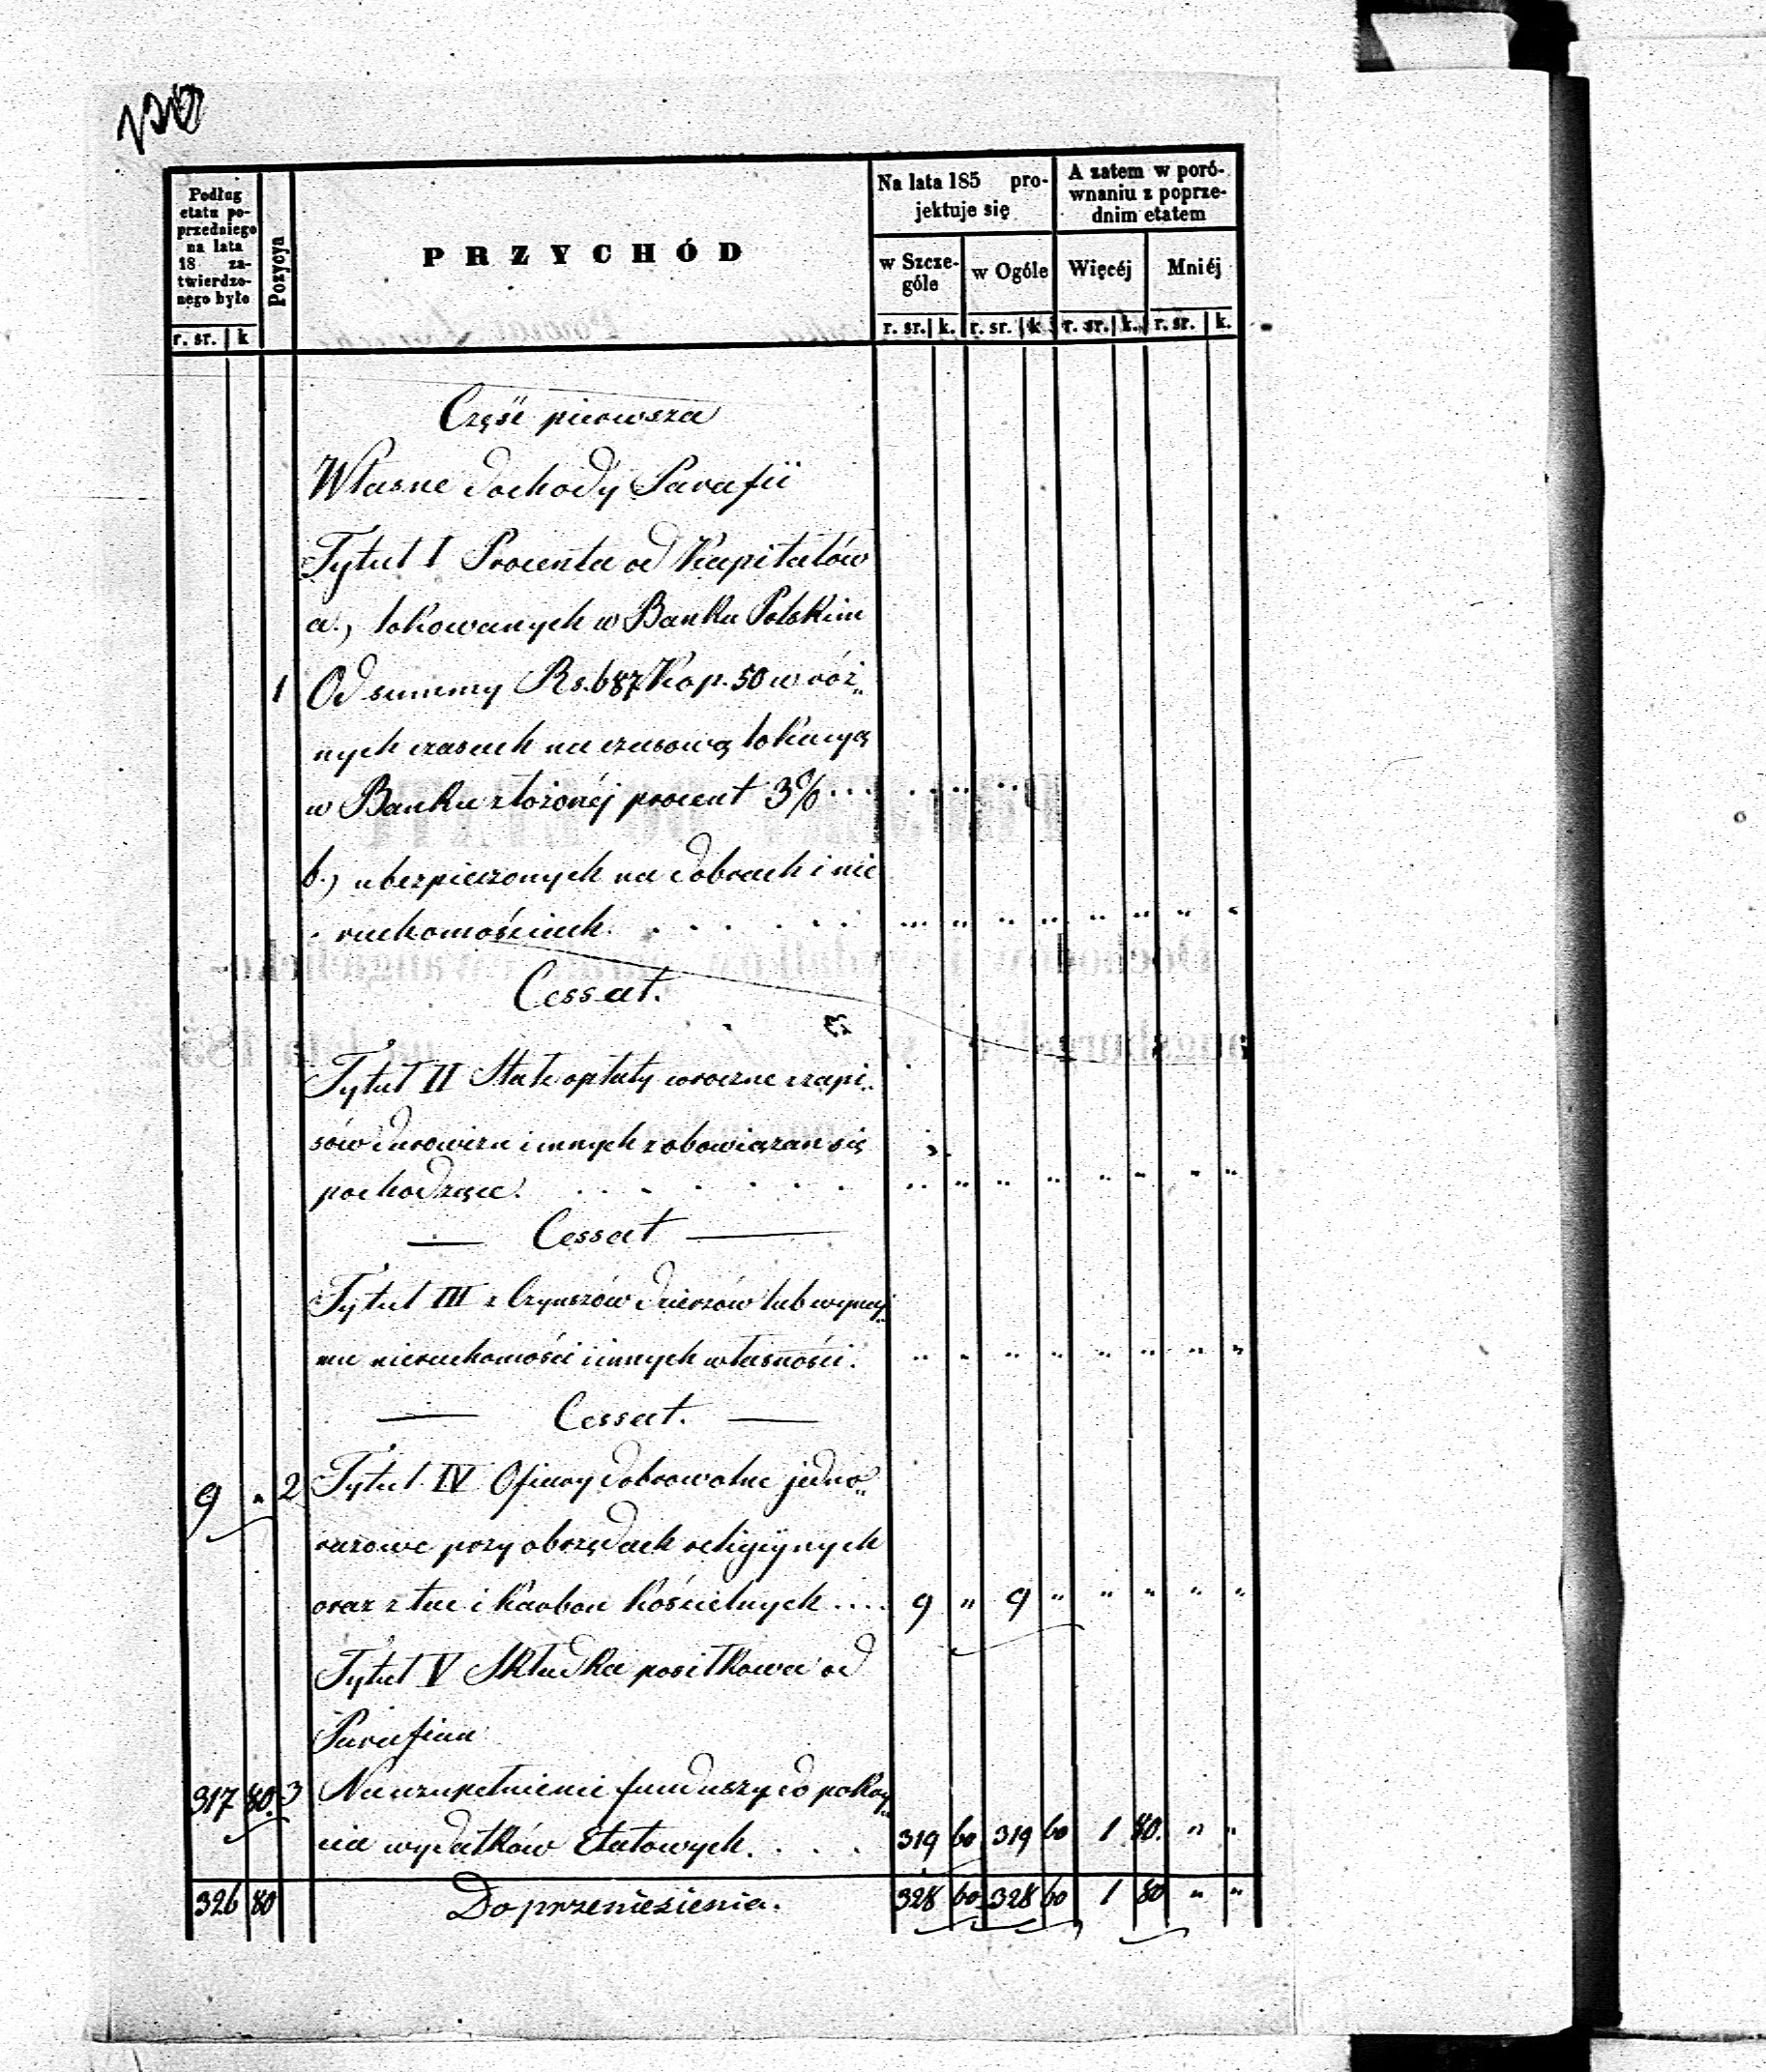 Podług
etatu po-
przedniego
na lata
18 za-
twierdzo-
nego było
r. sr. k
Pozycya
PRZYCHÓD
Na lata 185 pro-
jektuje się
w Szcze-
góle
w Ogóle
r. sr. k. r. sr. k
A zatem w poró-
wnaniu z poprze-
dnim etatem
Więcéj Mniéj
r. sr. k. r. sr. k.
Część pierwsza
Własne dochody Parafii
Tytuł I Procenta od Kapitałów
a., lokowanych w Banku Polskim
1 Od summy Rs. 687 Kop. 50 w róż„
nych czasach na czasową lokacyą
w Banku złożonéj procent 3% ... .. .. ..
b., ubezpieczonych na dobrach i nie
ruchomościach. . . . . . . ... .. .. .. .. .. „ „
Cessat.
Tytuł II Stałe opłaty coroczne z zapi„
sów darowizn i innych zobowiązań się
pochodzące. . . . . . . . .. .. .. .. .. „ „ „
— Cessat —
Tytuł III z Czynszów dzierżaw lub wynaj„
mu nieruchomości i innych własności. .. „ .. .. .. .. „ „
— Cessat. —
9 „ 2 Tytuł IV Ofiary dobrowolne jedno„
razowe przy obrzędach religijnych
oraz z tac i karbon kościelnych .... 9 „ 9 „ „ „ „ „
Tytuł V Składka posiłkowa od
Parafian
317 80. 3 Na uzupełnienie funduszy do pokry„
cia wydatków Etatowych. . . . 319 60 319 60 1 80. „ „
326 80 Do przeniesienia. 328 60 328 60 1 80 „ „